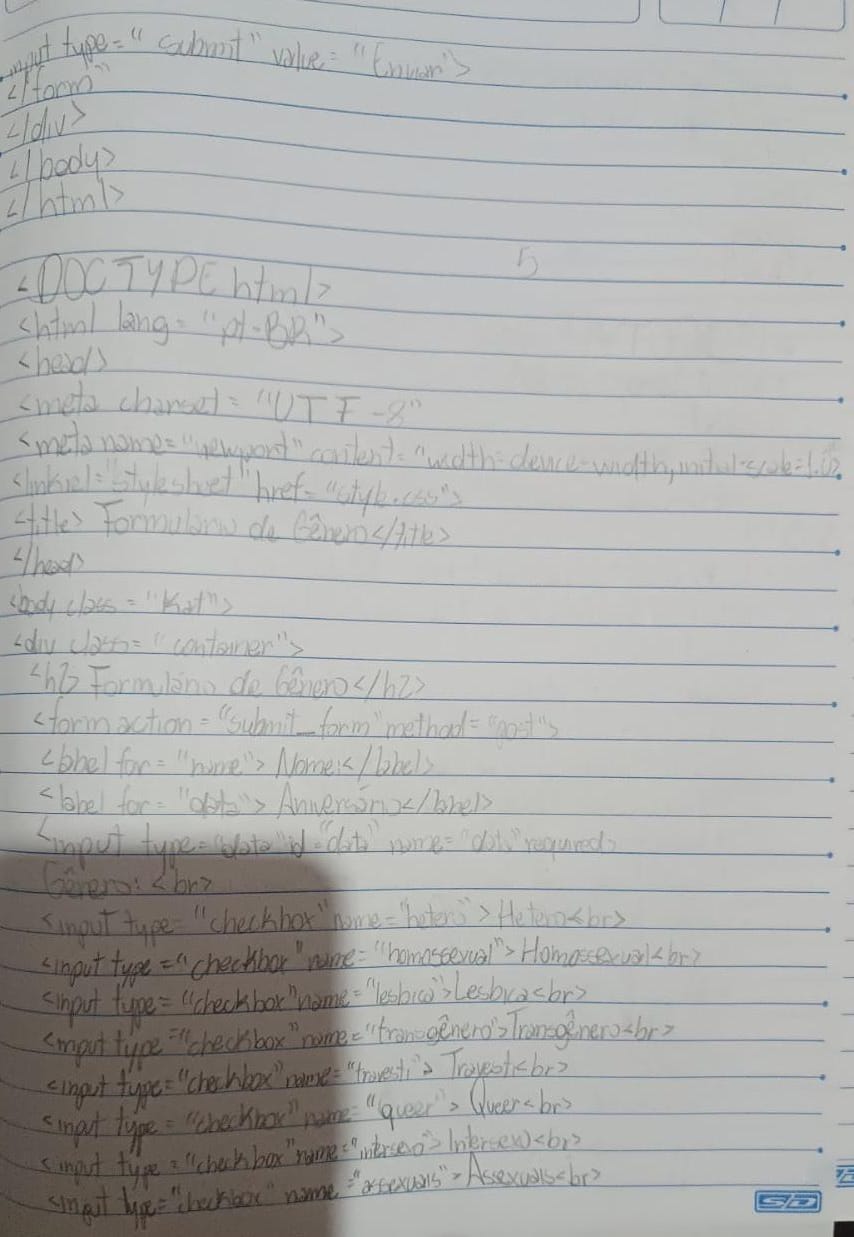 input type="submit" value="Enviar">
</form>
</div>
</body>
</html>
5
<DOCTYPE html>
<html lang="pt-BR">
<head>
<meta charset="UTF-8"
<meta name="viewport" content="width=device-width, initial-scale=1.0>
<link rel="stylesheet" href="style.css">
<title> Formulário de Gênero</title>
</head>
<body class="Kat">
<div class="container">
<h2> Formulário de Gênero</h2>
<form action="submit_form" method="post">
<label for="nome"> Nome:</label>
<label for="data"> Aniversário</label>
<input type="data" id="data" name="data" required>
Gênero: <br>
<input type="checkbox" name="hetero">Hetero<br>
<input type="checkbox" name="homossexual">Homossexual<br>
<input type="checkbox" name="lesbica">Lesbica<br>
<input type="checkbox" name="transgênero">Transgênero<br>
<input type="checkbox" name="travesti"> Travesti<br>
<input type="checkbox" name="queer"> Queer<br>
<input type="checkbox" name="intersexo"> Intersexo<br>
<input type="checkbox" name="assexuais"> Asexuais<br>
SD